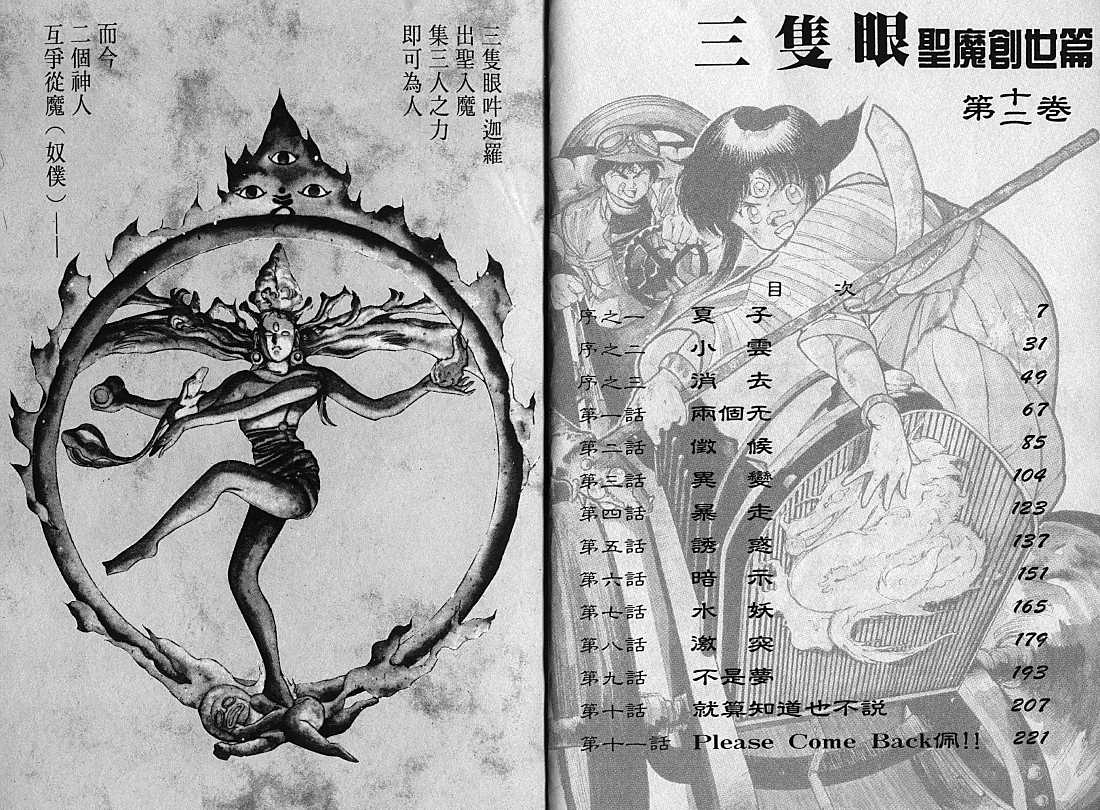 三隻眼 聖魔創世篇
第十二巻
目次
序之一 夏子 7
序之二 小雲 31
序之三 消去 49
第一話 兩個无 67
第二話 徵候 85
第三話 異變 104
第四話 暴走 123
第五話 誘惑 137
第六話 暗示 151
第七話 水妖 165
第八話 激突 179
第九話 不是夢 193
第十話 就算知道也不説 207
第十一話 Please Come Back佩!! 221
三隻眼吽迦羅
出聖入魔
集三人之力
即可為人
而今
二個神人
互爭從魔（奴僕）——